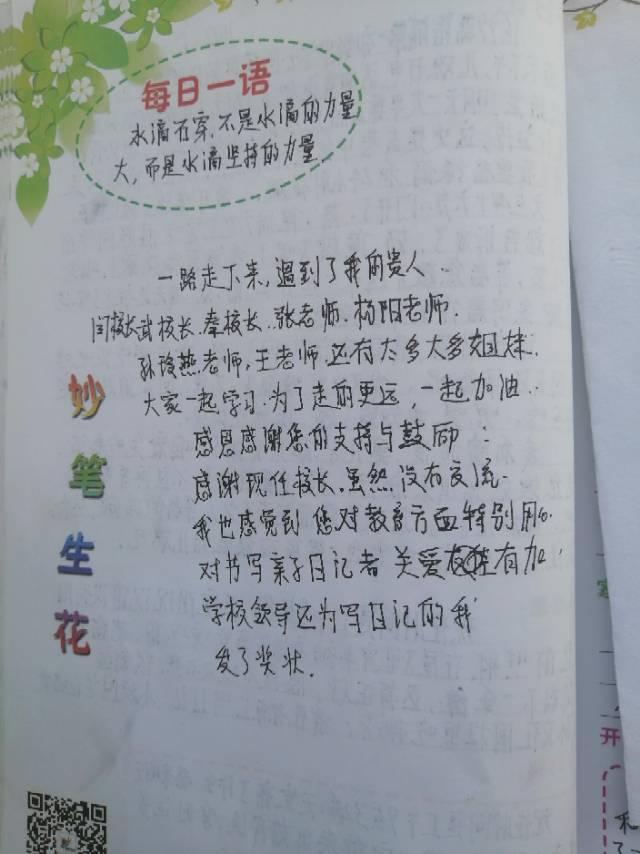 每日一语
水滴石穿,不是水滴的力量
大,而是水滴坚持的力量
一路走下来,遇到了我的贵人..
闫校长武校长.秦校长.张老师.杨阳老师.
孙玲燕老师,王老师.还有太多太多姐妹.
大家一起学习.为了走的更远,一起加油..
感恩感谢您的支持与鼓励:
感谢现任校长.虽然没有交流.
我也感觉到您对教育方面特别用心.
对书写亲子日记者关爱有加.
学校领导还为写日记的我
发了奖状.
妙笔生花
开